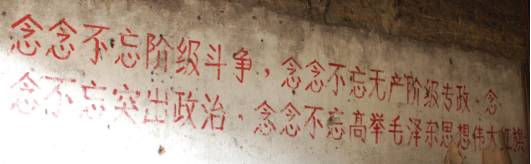 念念不忘阶级斗争，念念不忘无产阶级专政·念
念不忘突出政治·念念不忘高举毛泽东思想伟大红旗